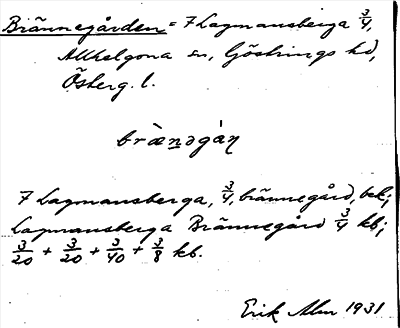 Brännegården = 7 Lagmansberga 3/4,
Allhelgona sn, Göstrings hd,
Österg. l.
bræ̀nəgàṇ
7 Lagmansberga, 3/4, brännegård, bek;
Lagmansberga Brännegård 3/4 kb;
3/20 + 3/20 + 3/40 + 3/8 kb.
Erik Alm 1931